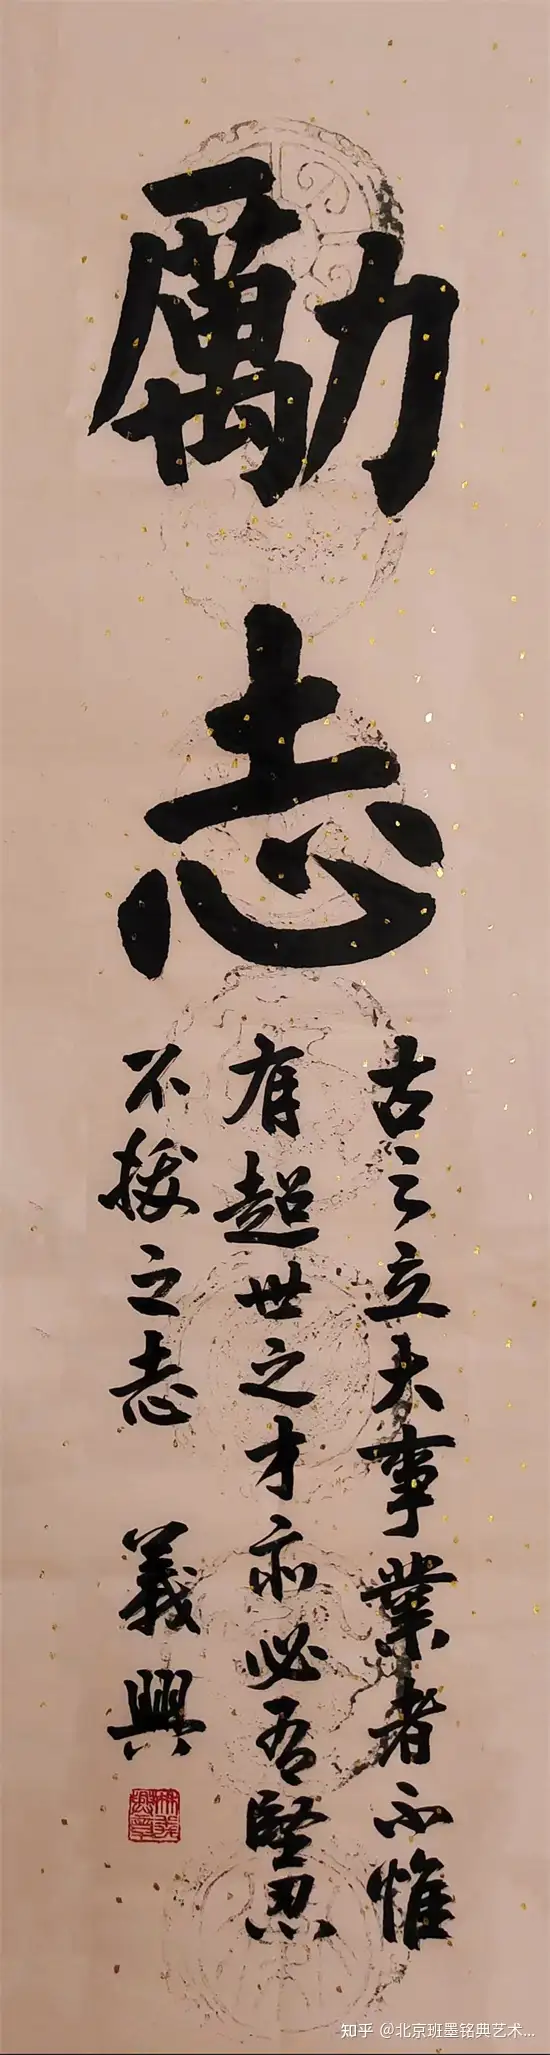 勵志
古之立大事業者不惟
有超世之才亦必有堅忍
不拔之志 義興
知乎 @北京班墨铭典艺术...